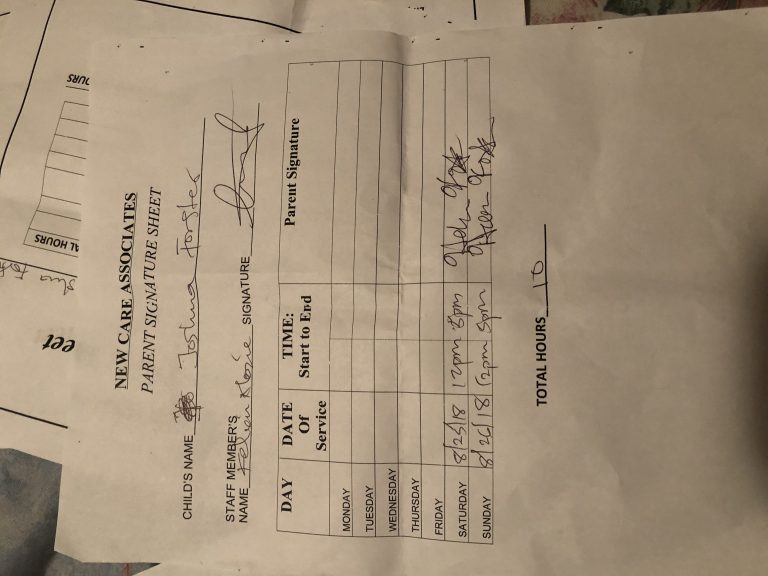 NEW CARE ASSOCIATES
PARENT SIGNATURE SHEET
CHILD'S NAME Joshua Forster
STAFF MEMBER'S
NAME SIGNATURE
DAY DATE Of Service TIME: Start to End Parent Signature
MONDAY
TUESDAY
WEDNESDAY
THURSDAY
FRIDAY
SATURDAY 8/25/18 12pm 5pm Helen
SUNDAY 8/26/18 12pm 5pm Helen
TOTAL HOURS 10
AL HOURS
eet